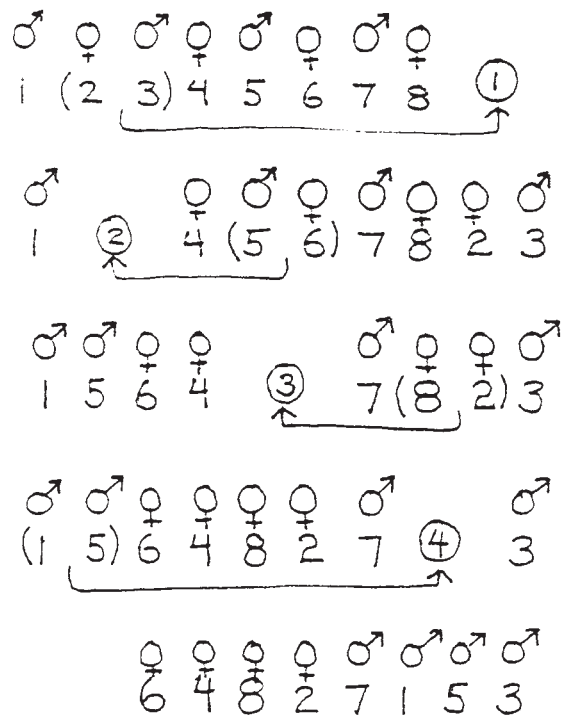 ♂ ♀ ♂ ♀ ♂ ♀ ♂ ♀
1 (2 3) 4 5 6 7 8 ①
♂ ♀ ♂ ♀ ♂ ♀ ♀ ♂
1 ② 4 (5 6) 7 8 2 3
♂ ♂ ♀ ♀ ♂ ♀ ♀ ♂
1 5 6 4 ③ 7 (8 2) 3
♂ ♂ ♀ ♀ ♀ ♀ ♂ ♂
(1 5) 6 4 8 2 7 ④ 3
♀ ♀ ♀ ♀ ♂ ♂ ♂ ♂
6 4 8 2 7 1 5 3